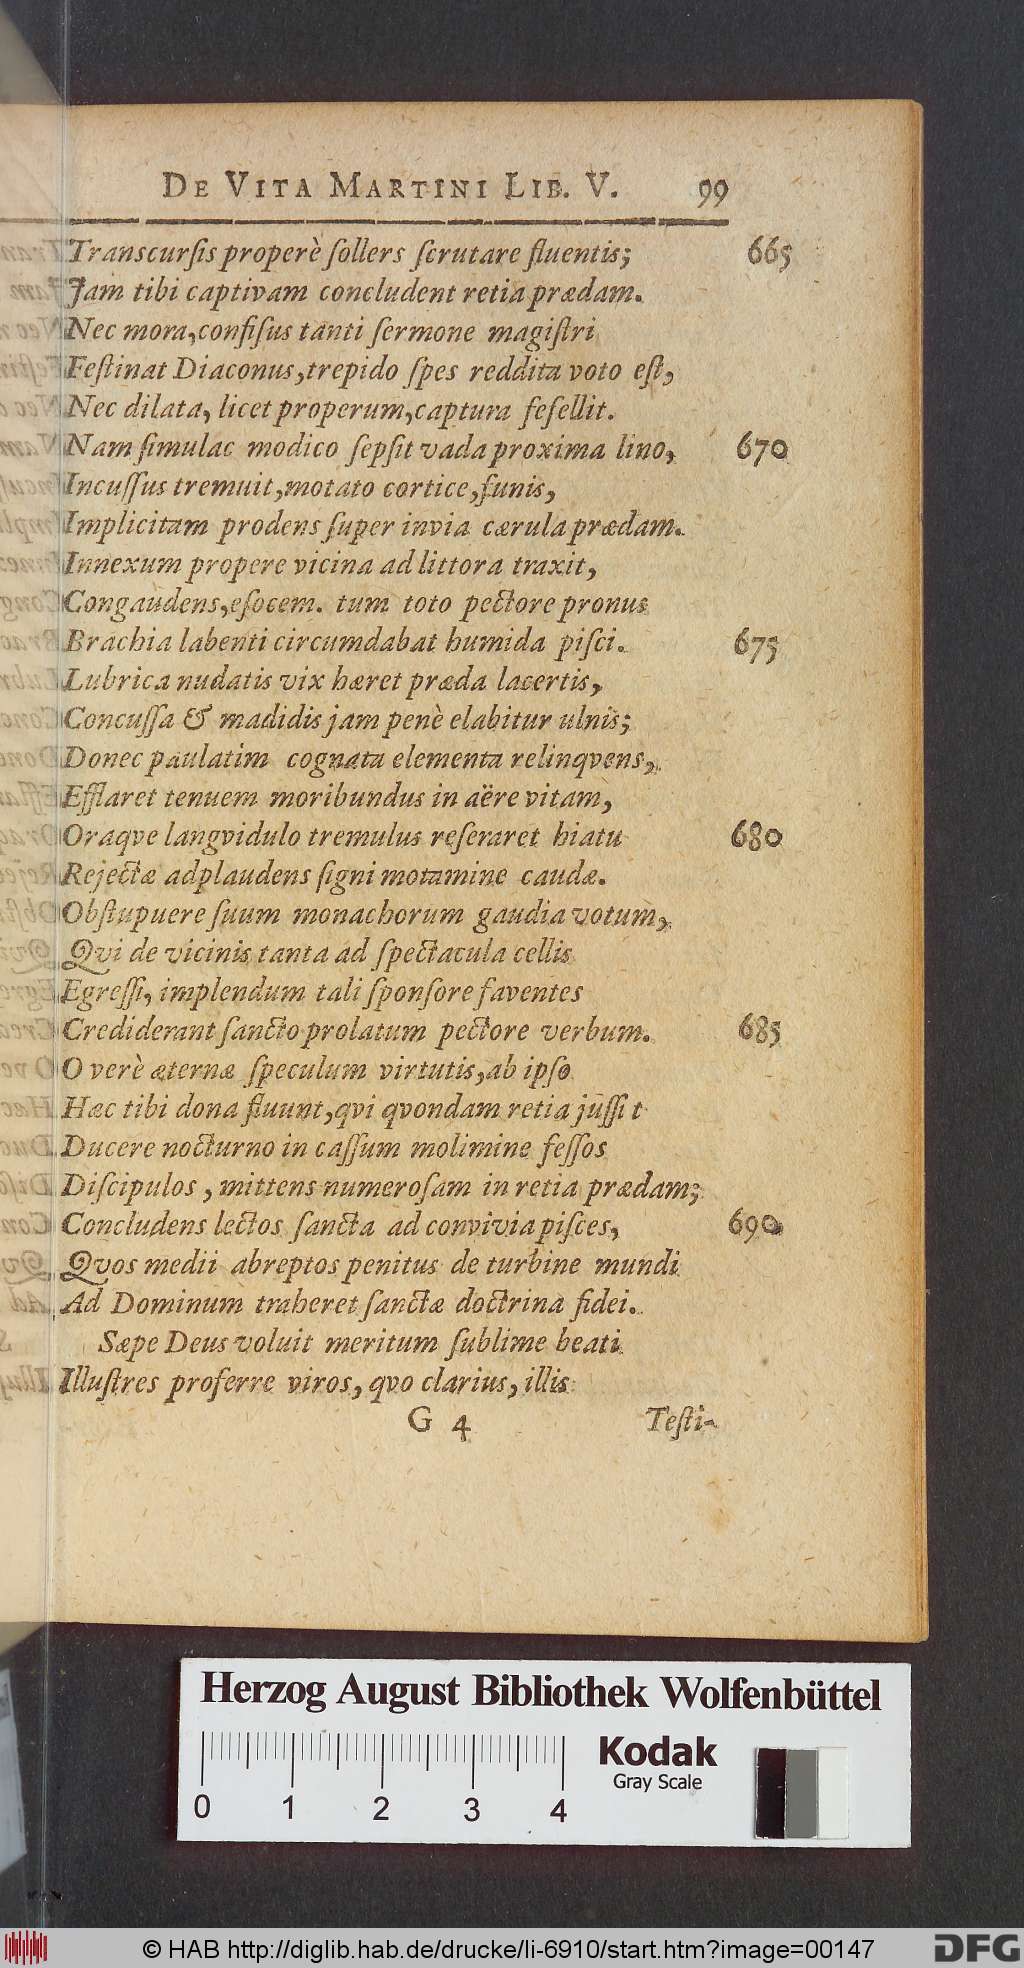 DE VITA MARTINI LIB. V. 99
Transcurſis properè ſollers ſcrutare fluentis; 665
Jam tibi captivam concludent retia prædam.
Nec mora, confiſus tanti ſermone magiſtri
Feſtinat Diaconus, trepido ſpes reddita voto eſt,
Nec dilata, licet properum, captura fefellit.
Nam ſimulac modico ſepſit vada proxima lino, 670
Incuſſus tremuit, motato cortice, funis,
Implicitam prodens ſuper invia cærula prædam.
Innexum propere vicina ad littora traxit,
Congaudens, eſocem. tum toto pectore pronus
Brachia labenti circumdabat humida piſci. 675
Lubrica nudatis vix hæret præda lacertis,
Concuſſa & madidis jam penè elabitur ulnis;
Donec paulatim cognata elementa relinqvens,
Efflaret tenuem moribundus in aëre vitam,
Oraqve langvidulo tremulus reſeraret hiatu 680
Rejectæ adplaudens ſigni motamine caudæ.
Obſtupuere ſuum monachorum gaudia votum,
Qvi de vicinis tanta ad ſpectacula cellis
Egreſſi, implendum tali ſponſore faventes
Crediderant ſancto prolatum pectore verbum. 685
O verè æternæ ſpeculum virtutis, ab ipſo
Hæc tibi dona fluunt, qvi qvondam retia juſſit
Ducere nocturno in caſſum molimine feſſos
Diſcipulos, mittens numeroſam in retia prædam;
Concludens lectos ſancta ad convivia piſces, 690
Qvos medii abreptos penitus de turbine mundi
Ad Dominum traheret ſanctæ doctrina fidei.
Sæpe Deus voluit meritum ſublime beati
Illuſtres proferre viros, qvo clarius, illis
G 4 Teſti-
Herzog August Bibliothek Wolfenbüttel
Kodak
Gray Scale
0 1 2 3 4
© HAB http://diglib.hab.de/drucke/li-6910/start.htm?image=00147
DFG